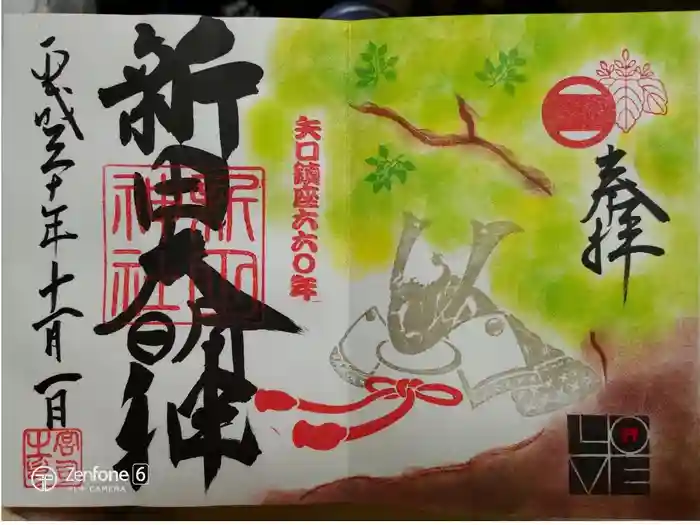 奉拝
矢口鎮座六六〇年
新田大明神
新田神社
平成三十年十一月一日
LOVE
Zenfone 6
AI CAMERA